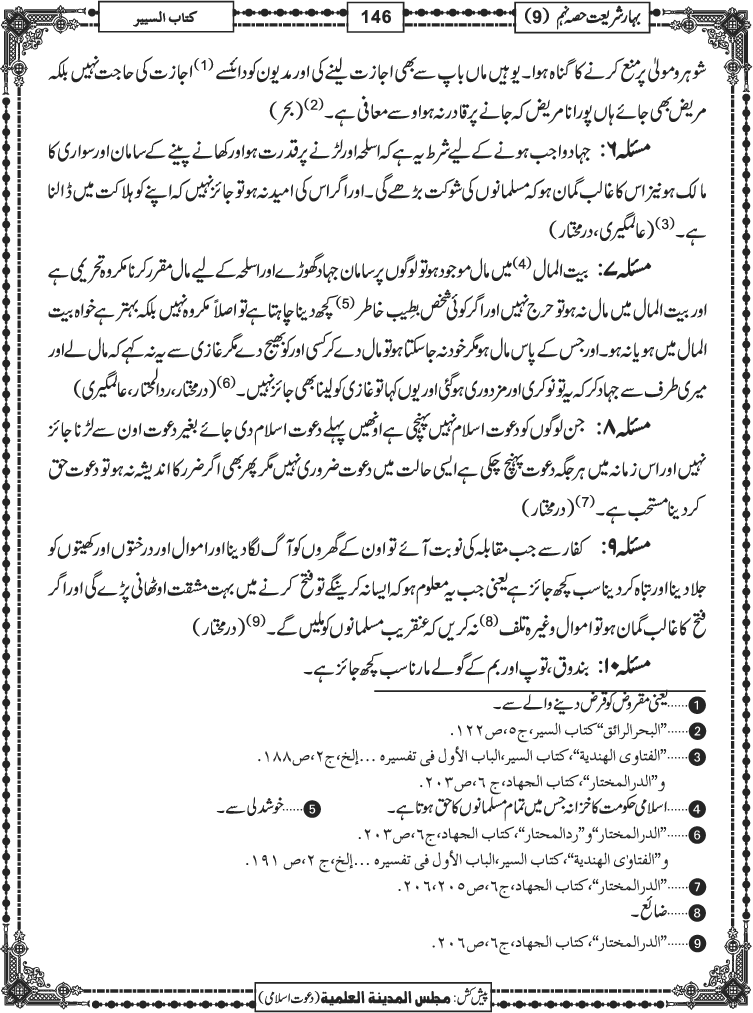 بہار شریعت حصہ نہم (9)
146
کتاب السییر
شوہر و مولیٰ پر منع کرنے کا گناہ ہوا۔ یوہیں ماں باپ سے بھی اجازت لینے کی اور مدیون کو دائنسے (1) اجازت کی حاجت نہیں بلکہ
مریض بھی جائے ہاں پورانا مریض کہ جانے پر قادر نہ ہو اوسے معافی ہے۔ (2) (بحر)
مسئلہ ۶: جہاد واجب ہونے کے لیے شرط یہ ہے کہ اسلحہ اور لڑنے پر قدرت ہو اور کھانے پینے کے سامان اور سواری کا
مالک ہو نیز اس کا غالب گمان ہو کہ مسلمانوں کی شوکت بڑھے گی۔ اور اگر اس کی امید نہ ہو تو جائز نہیں کہ اپنے کو ہلاکت میں ڈالنا
ہے۔ (3) (عالمگیری، درمختار)
مسئلہ ۷: بیت المال (4) میں مال موجود ہو تو لوگوں پر سامان جہاد گھوڑے اور اسلحہ کے لیے مال مقرر کرنا مکروہ تحریمی ہے
اور بیت المال میں مال نہ ہو تو حرج نہیں اور اگر کوئی شخص بطیب خاطر (5) کچھ دینا چاہتا ہے تو اصلاً مکروہ نہیں بلکہ بہتر ہے خواہ بیت
المال میں ہو یا نہ ہو۔ اور جس کے پاس مال ہو مگر خود نہ جا سکتا ہو تو مال دے کر کسی اور کو بھیج دے مگر غازی سے یہ نہ کہے کہ مال لے اور
میری طرف سے جہاد کر کہ یہ تو نوکری اور مزدوری ہوگئی اور یوں کہا تو غازی کو لینا بھی جائز نہیں۔ (6) (درمختار، ردالمحتار، عالمگیری)
مسئلہ ۸: جن لوگوں کو دعوت اسلام نہیں پہنچی ہے اونھیں پہلے دعوت اسلام دی جائے بغیر دعوت اون سے لڑنا جائز
نہیں اور اس زمانہ میں ہر جگہ دعوت پہنچ چکی ہے ایسی حالت میں دعوت ضروری نہیں مگر پھر بھی اگر ضرر کا اندیشہ نہ ہو تو دعوت حق
کردینا مستحب ہے۔ (7) (درمختار)
مسئلہ ۹: کفار سے جب مقابلہ کی نوبت آئے تو اون کے گھروں کو آگ لگا دینا اور اموال اور درختوں اور کھیتوں کو
جلا دینا اور تباہ کردینا سب کچھ جائز ہے یعنی جب یہ معلوم ہو کہ ایسا نہ کرینگے تو فتح کرنے میں بہت مشقت اوٹھانی پڑے گی اور اگر
فتح کا غالب گمان ہو تو اموال وغیرہ تلف (8) نہ کریں کہ عنقریب مسلمانوں کو ملیں گے۔ (9) (درمختار)
مسئلہ ۱۰: بندوق، توپ اور بم کے گولے مارنا سب کچھ جائز ہے۔
1 ......یعنی مقروض کو قرض دینے والے سے۔
2 ......”البحرالرائق“ کتاب السیر، ج۵، ص۱۲۲.
3 ......”الفتاوی الھندیۃ“، کتاب السیر، الباب الأول فی تفسیرہ ...إلخ، ج۲، ص۱۸۸.
و”الدرالمختار“، کتاب الجھاد، ج ۶، ص۲۰۳.
4 ......اسلامی حکومت کا خزانہ جس میں تمام مسلمانوں کا حق ہوتا ہے۔ 5 ......خوشدلی سے۔
6 ......”الدرالمختار“ و”ردالمحتار“، کتاب الجھاد، ج۶، ص۲۰۳.
و”الفتاوٰی الھندیۃ“، کتاب السیر، الباب الأول فی تفسیرہ ...إلخ، ج ۲، ص ۱۹۱.
7 ......”الدرالمختار“، کتاب الجھاد، ج۶، ص۲۰۵، ۲۰۶.
8 ......ضائع۔
9 ......”الدرالمختار“، کتاب الجھاد، ج۶، ص۲۰۶.
پیش کش: مجلس المدینة العلمیة (دعوت اسلامی)